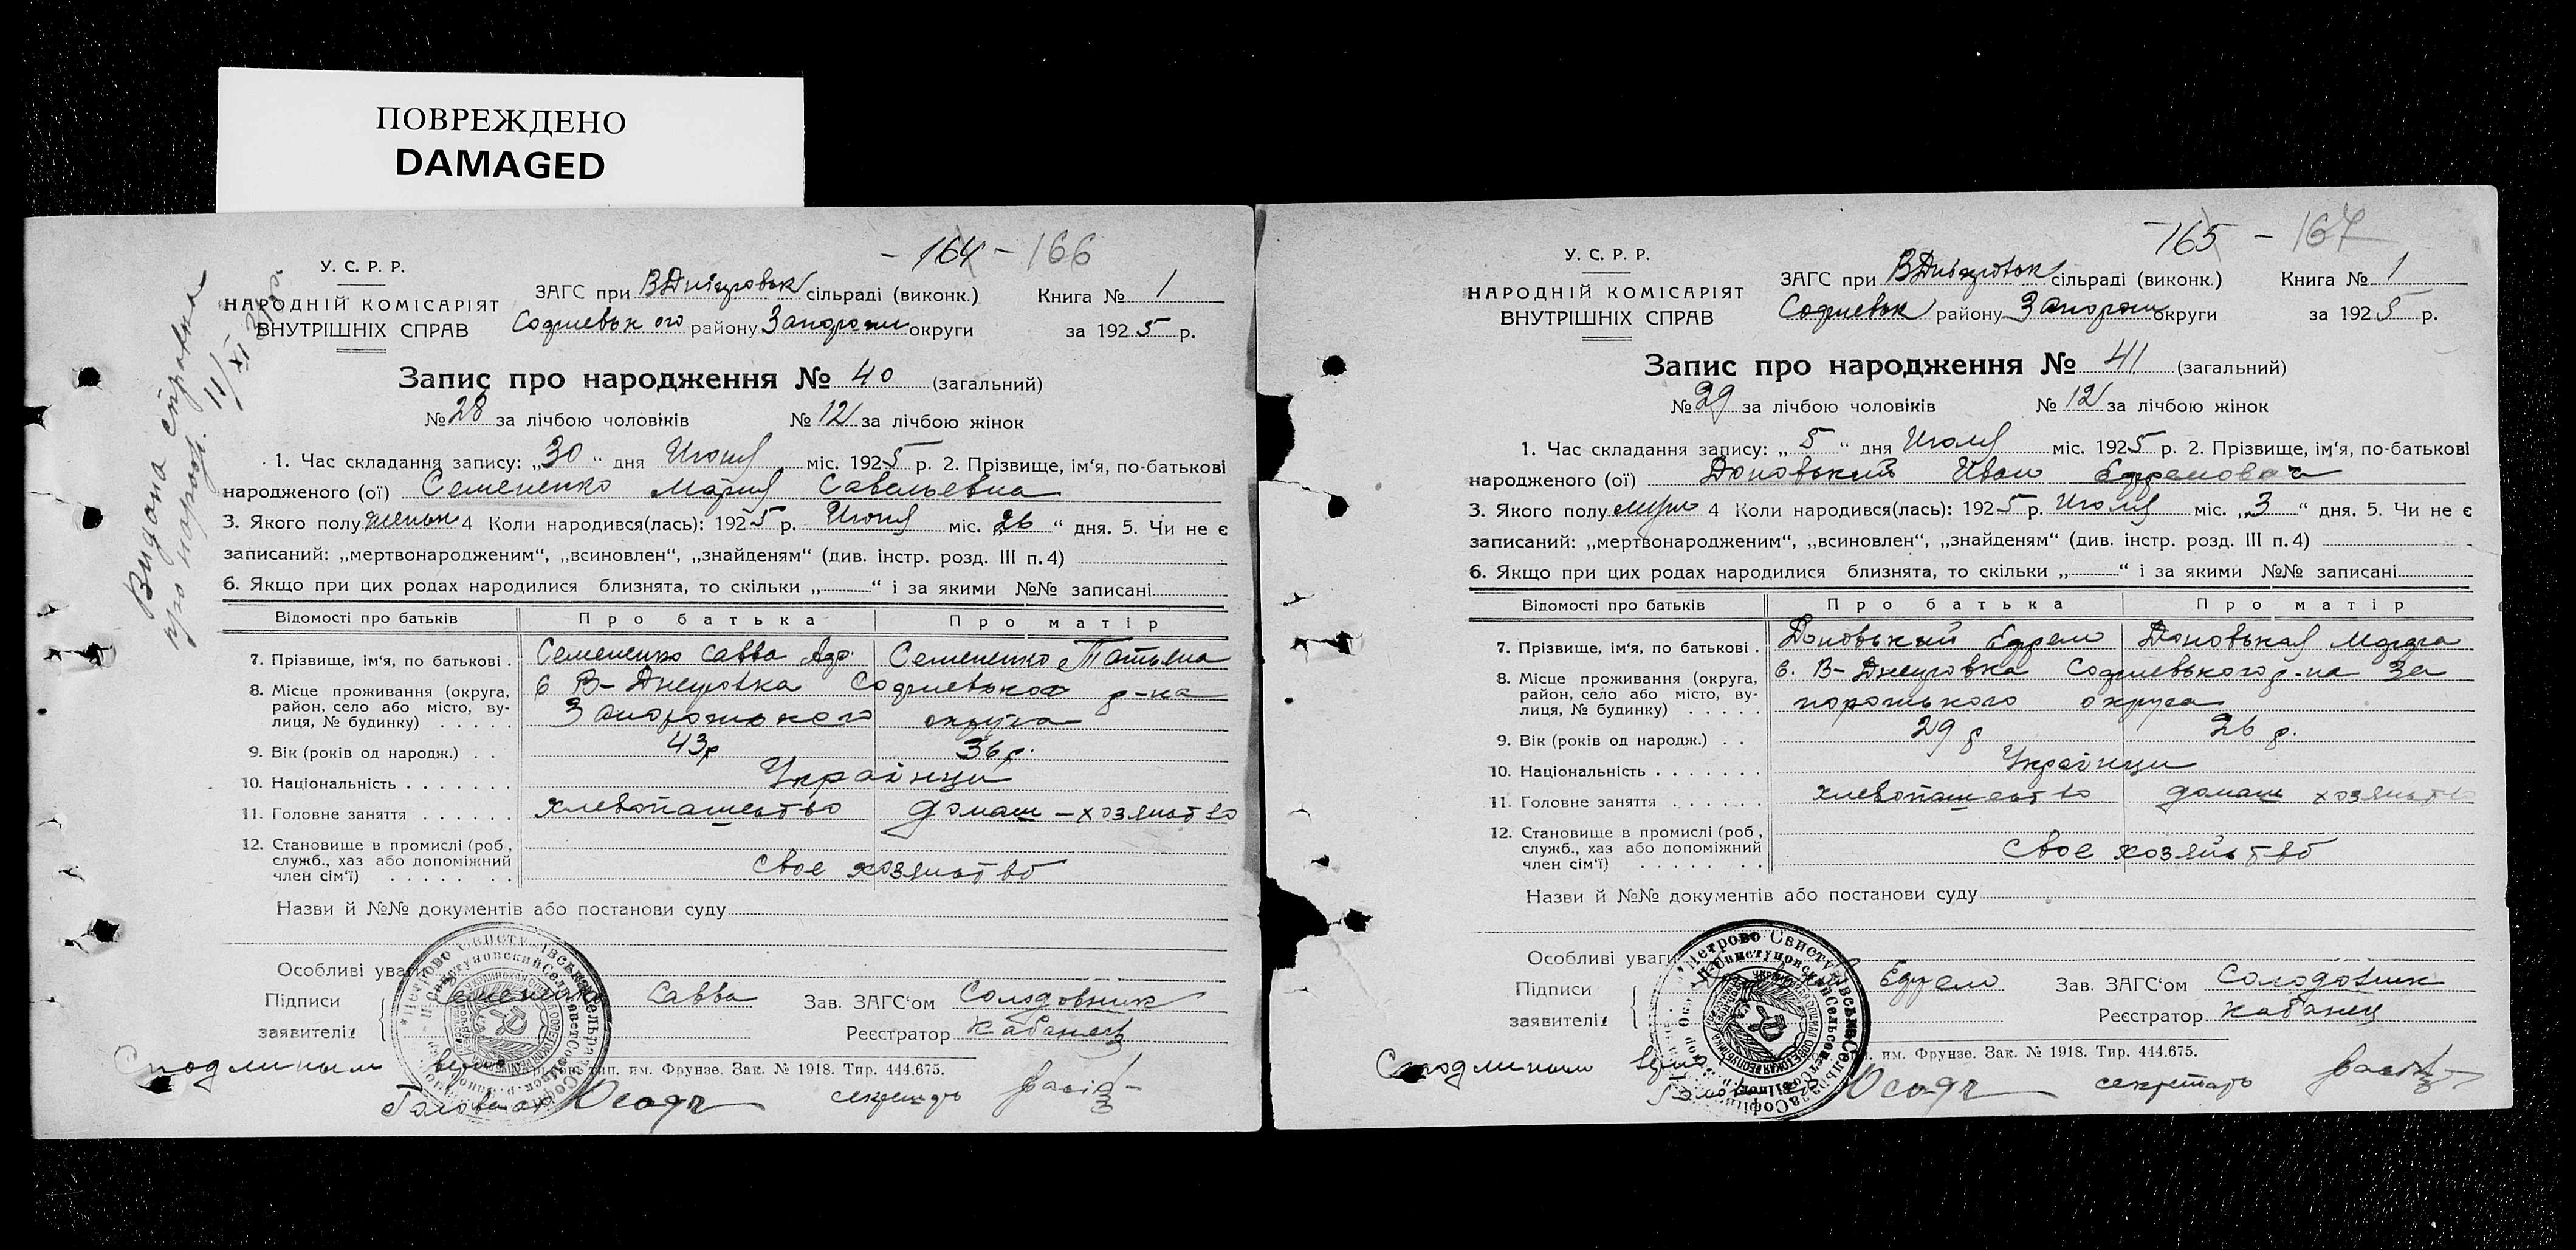 ПОВРЕЖДЕНО
DAMAGED
- 164 - 166
У. С. Р. Р.
НАРОДНІЙ КОМІСАРІЯТ
ВНУТРІШНІХ СПРАВ
ЗАГС при ВДніпровськ сільраді (виконк.)
Книга № 1
Софиевьк ого району Запорожи округи
за 1925 р.
Видана справка
про народж. 11/XI
Запис про народження № 40 (загальний)
№ 28 за лічбою чоловіків № 12 за лічбою жінок
1. Час складання запису: „30" дня Июня міс. 1925 р. 2. Прізвище, ім'я, по-батькові
народженого (ої) Семененко Мария Савельевна
3. Якого полу женск 4 Коли народився(лась): 1925 р. Июня міс. „26" дня. 5. Чи не є
записаний: „мертвонародженим", „всиновлен", „знайденям" (див. інстр. розд. III п. 4)
6. Якщо при цих родах народилися близнята, то скільки „ " і за якими №№ записані
Відомості про батьків Про батька Про матір
7. Прізвище, ім'я, по батькові . Семененко Савва Семененко Татьяна
8. Місце проживання (округа, район, село або місто, вулиця, № будинку) . . . . . с В-Днепровка Софиевького р-на
Запорожького округа
9. Вік (років од народж.) . . 43 р 36 р.
10. Національність . . . . . . . Українци
11. Головне заняття . . . . . . хлевопашество домаш - хозяйство
12. Становище в промислі (роб, служб., хаз або допоміжний член сім'ї) . . . . . . . свое хозяйство
Назви й №№ документів або постанови суду
Особливі уваги
Підписи
заявителів
Семененко Савва
Зав. ЗАГС'ом Солодовник
Реєстратор Кабанец
им. Фрунзе. Зак. № 1918. Тир. 444.675.
С подлиным верно
Голова секретарь
165 - 167
У. С. Р. Р.
НАРОДНІЙ КОМІСАРІЯТ
ВНУТРІШНІХ СПРАВ
ЗАГС при ВДніпровськ сільраді (виконк.)
Книга № 1
Софиевьк району Запорож округи
за 1925 р.
Запис про народження № 41 (загальний)
№ 29 за лічбою чоловіків № 12 за лічбою жінок
1. Час складання запису: „5" дня Июля міс. 1925 р. 2. Прізвище, ім'я, по-батькові
народженого (ої) Доновький Иван Ефремович
3. Якого полу муж 4 Коли народився(лась): 1925 р. Июля міс. „3" дня. 5. Чи не є
записаний: „мертвонародженим", „всиновлен", „знайденям" (див. інстр. розд. III п. 4)
6. Якщо при цих родах народилися близнята, то скільки „ " і за якими №№ записані
Відомості про батьків Про батька Про матір
7. Прізвище, ім'я, по батькові . Доновький Ефрем Доновькая
8. Місце проживання (округа, район, село або місто, вулиця, № будинку) . . . . . с. В-Днепровка Софиевького р-на За
порожького округа
9. Вік (років од народж.) . . 29 р 26 р.
10. Національність . . . . . . . Українци
11. Головне заняття . . . . . . хлевопашество домаш хозяйство
12. Становище в промислі (роб, служб., хаз або допоміжний член сім'ї) . . . . . . . свое хозяйство
Назви й №№ документів або постанови суду
Особливі уваги
Підписи
заявителів
Ефрем
Зав. ЗАГС'ом Солодовник
Реєстратор Кабанец
им. Фрунзе. Зак. № 1918. Тир. 444.675.
С подлиным верно
секретарь